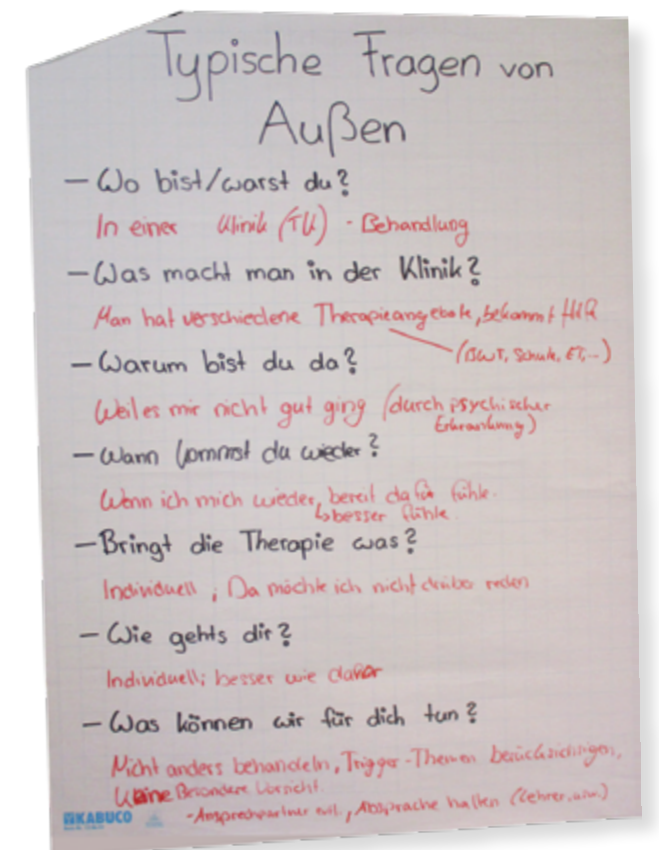 Typische Fragen von
Außen
– Wo bist/warst du?
In einer Klinik (TK) - Behandlung
– Was macht man in der Klinik?
Man hat verschiedene Therapieangebote, bekommt Hilfe
(BWT, Schule, ET,...)
– Warum bist du da?
Weil es mir nicht gut ging (durch psychischer
Erkrankung)
– Wann kommst du wieder?
Wenn ich mich wieder, bereit dafür fühle.
↳ besser fühle.
– Bringt die Therapie was?
Individuell ; Da möchte ich nicht drüber reden
– Wie gehts dir?
Individuell; besser wie davor
– Was können wir für dich tun?
Nicht anders behandeln, Trigger-Themen berücksichtigen,
Keine Besondere Vorsicht.
- Ansprechpartner evtl., Absprache halten (Lehrer, usw.)
KABUCO